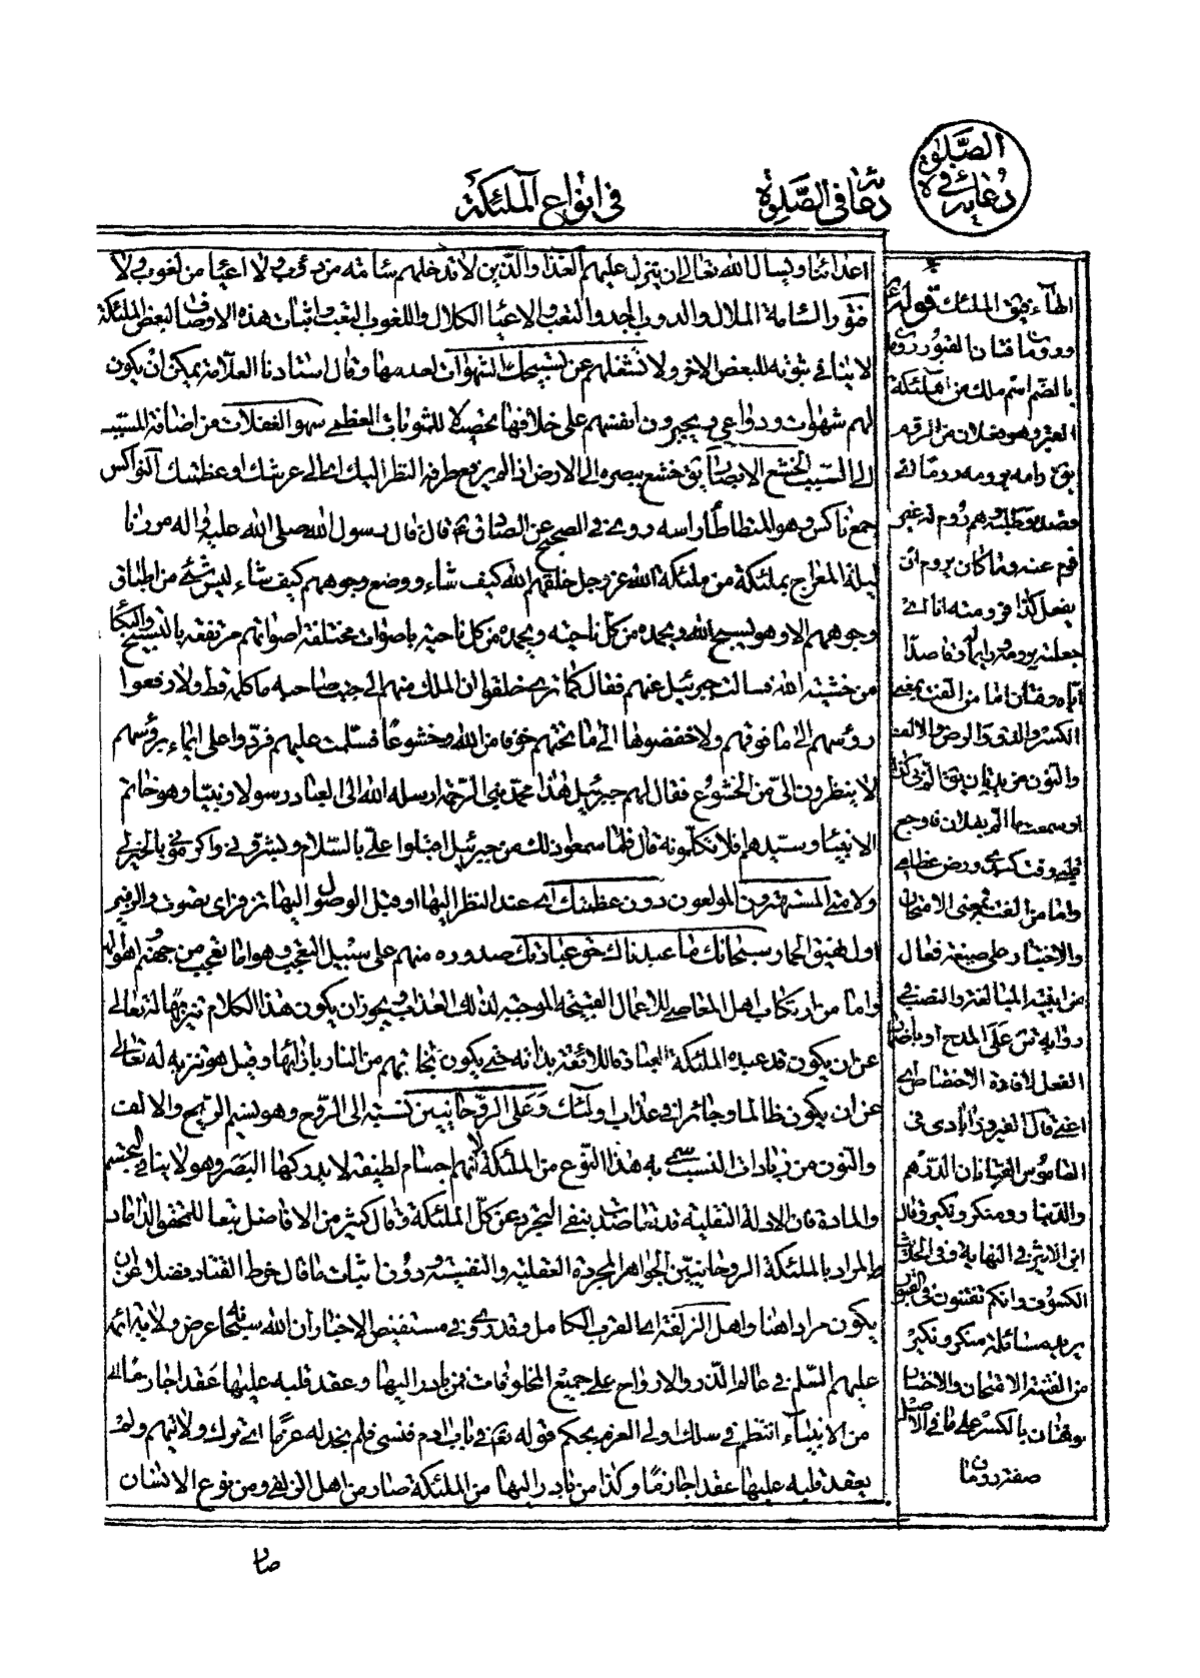 الصلوة
دعائه في
دعائه في الصلوة
في انواع الملئكة
اعدائنا ويسال الله تعالى ان ينزل عليهم العذاب والذين لا تدخلهم سامة من دؤب ولا اعياء من لغوب ولا
فتور السامة الملال والدوب الجد والتعب والاعياء الكلال واللغوب التعب واثبات هذه الاوصاف لبعض الملئكة
لا ينافي ثبوته للبعض الاخر ولا تشغلهم عن تسبيحك الشهوات لعدمها وقال استادنا العلامة يمكن ان يكون
لهم شهوات ودواعي ويجبرون انفسهم على خلافها تحصيلا للمثوبات العظمى سهو الغفلات من اضافة المسبب
الى السبب الخشع الابصار يق خشع ببصره الى الارض اذا لم يرفع طرفه النظر اليك اى الى عرشك او عظمتك النواكس
جمع ناكس وهو المتطاطأ راسه روى في الصحيح عن الصادق ع قال قال رسول الله صلى الله عليه واله مررنا
ليلة المعراج بملئكة من ملئكة الله عز وجل خلقهم الله كيف شاء ووضع وجوههم كيف شاء ليس شئ من اطباق
وجوههم الا وهو يسبح الله ويحمده من كل ناحية باصوات مختلفة اصواتهم مرتفعة بالتسبيح والبكاء
من خشية الله فسالت جبرئيل عنهم فقال كما ترى خلقوا ان الملك منهم الى جنب صاحبه ما كلمه قط ولا رفعوا
رؤسهم الى ما فوقهم ولا خفضوها الى ما تحتهم خوفا من الله وخشوعا فسلمت عليهم فردوا على ايماء برؤسهم
لا ينظرون الى من الخشوع فقال لهم جبرئيل هذا محمد نبي الرحمة ارسله الله الى العباد رسولا ونبيا وهو خاتم
الانبياء وسيدهم افلا تكلمونه قال فلما سمعوا ذلك من جبرئيل اقبلوا على بالسلام وبشروني واكرموني بالخير لي
ولامتي المستهترون المولعون دون عظمتك اى عند النظر اليها او قبل الوصول اليها تزفر اى تصوت والزفير
اول نهيق الحمار سبحانك ما عبدناك حق عبادتك صدوره منهم على سبيل التعجب وهو اما تعجب من جهنم اهواله
واما من ارتكاب اهل المعاصي للاعمال القبيحة الموجبة لذلك العذاب ويجوز ان يكون هذا الكلام تنزيها له تعالى
عن ان يكون قد عبده الملئكة العبادة اللائقة بذاته حتى يكون نجاتهم من النار بازائها وقيل هو تنزيه له تعالى
عن ان يكون ظالما وجائرا في عذاب اولئك وعلى الروحانيين نسبة الى الروح وهو نسيم الريح والالف
والنون من زيادات النسب سمى به هذا النوع من الملئكة لانهم اجسام لطيفة لا يدركها البصر وهو لا ينافي التجسم
والمادة فان الادلة النقلية قد تعاضدت بنفي التجرد عن كل الملئكة وقال كثير من الافاضل تبعا للمحقق الداماد
المراد بالملئكة الروحانيين الجواهر المجردة العقلية والنفسية ودون اثبات ما قال خرط القتاد فضلا عن ان
يكون مرادا هنا واهل الزلفة اى القرب الكامل وقد روى في مستفيض الاخبار ان الله سبحانه عرض ولاية ائمة
عليهم السلم في عالم الذر والارواح على جميع المخلوقات فمن بادر اليها وعقد قلبه عليها عقدا جازما الى
من الانبياء انتظم في سلك اولى العزم بحكم قوله تعالى في باب ادم فنسى فلم نجد له عزما اى ترك ولايتهم ولم
يعقد قلبه عليها عقدا جازما وكذا من بادر اليها من الملئكة صار من اهل الزلفى ومن نوع الانسان
صار
الهاء يق الملئك قوله ع
ورومان فتان القبور رومان
بالضم اسم ملك من الملئكة
يق رامه يرومه روما اى
قوم عنه وما كان يروم ان
يفعل كذا
اياه وفتان اما من الفتن بمعنى
واما من الفتنة بمعنى الامتحان
والاختبار على صيغة فعال
من ابنية المبالغة والنصب في
رواية س على المدح او باضمار
الفعل لافادة الاختصاص اى
اعنى قال الفيروزابادى في
القاموس الفتانان الدرهم
والدينار ومنكر ونكير وقال
ابن الاثير في النهاية وفي الحديث
الكسوف وانكم تفتنون في القبور
يريد مسائلة منكر ونكير
من الفتنة الامتحان والاختبار
وفتان بالكسر على ما في الاصل
صفة رومان